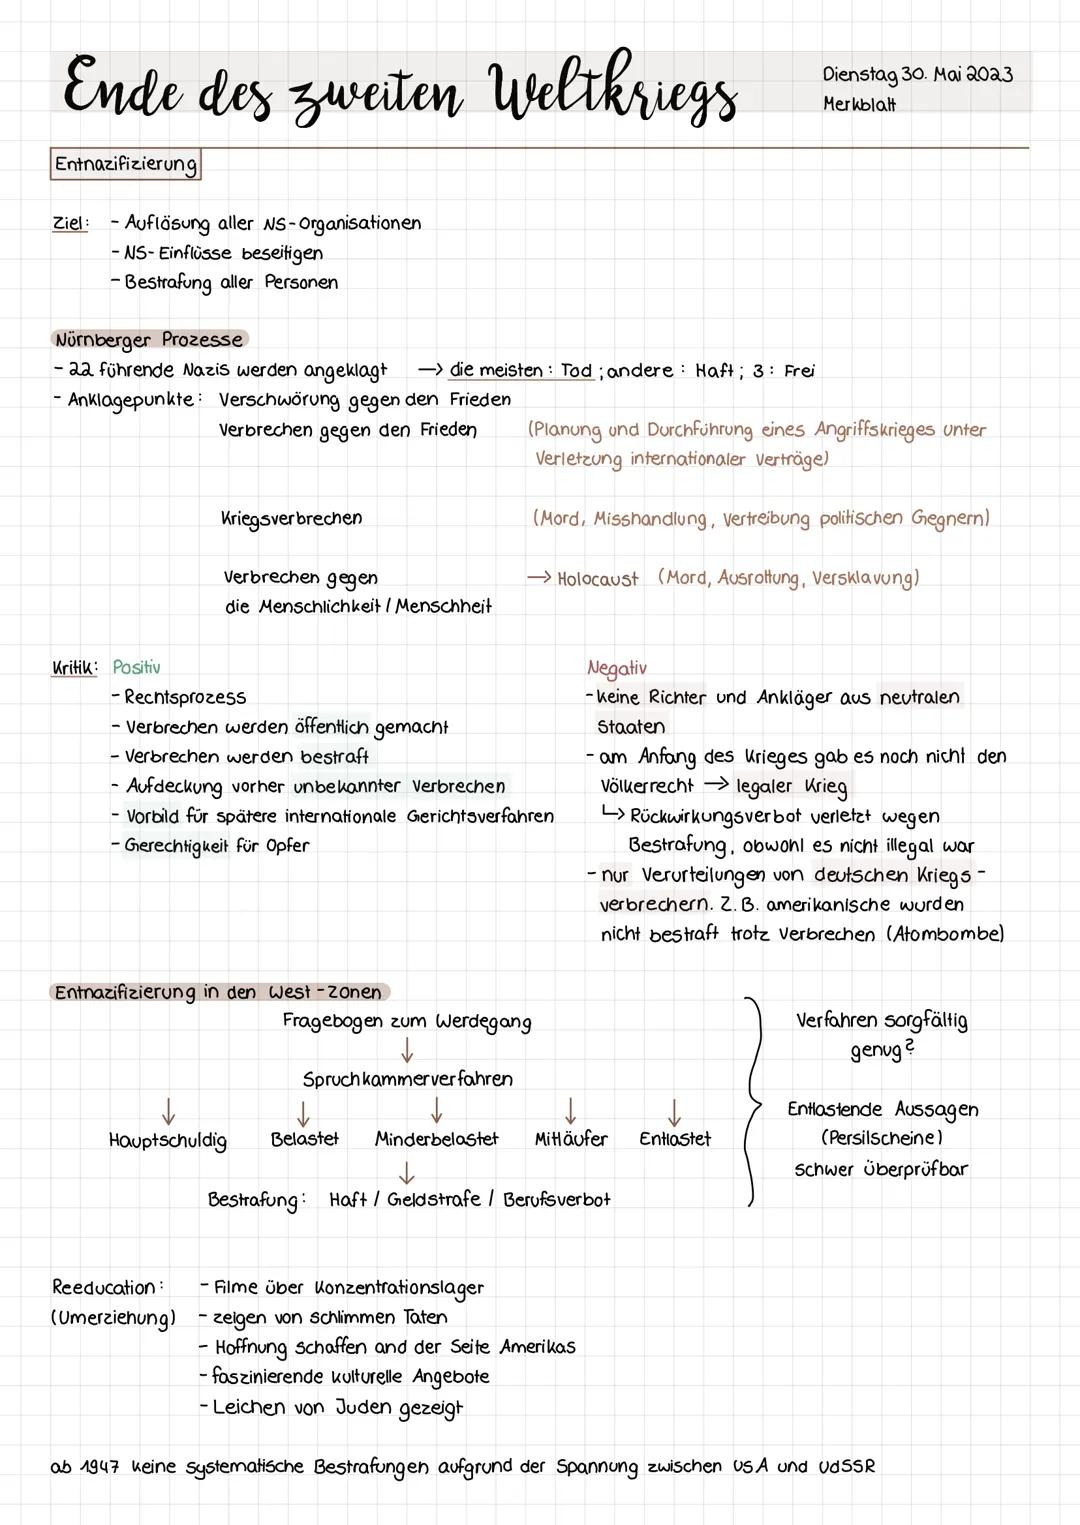 Ende des zweiten Weltkriegs
Dienstag 30. Mai 2023
Merkblatt
Entnazifizierung
Ziel: - Auflösung aller NS-Organisationen
- NS-Einflüsse beseitigen
- Bestrafung aller Personen
Nürnberger Prozesse
- 22 führende Nazis werden angeklagt → die meisten: Tod; andere: Haft; 3: Frei
- Anklagepunkte: Verschwörung gegen den Frieden
Verbrechen gegen den Frieden (Planung und Durchführung eines Angriffskrieges unter
Verletzung internationaler Verträge)
Kriegsverbrechen (Mord, Misshandlung, Vertreibung politischen Gegnern)
Verbrechen gegen → Holocaust (Mord, Ausrottung, Versklavung)
die Menschlichkeit / Menschheit
Kritik: Positiv
- Rechtsprozess
- Verbrechen werden öffentlich gemacht
- Verbrechen werden bestraft
- Aufdeckung vorher unbekannter Verbrechen
- Vorbild für spätere internationale Gerichtsverfahren
- Gerechtigkeit für Opfer
Negativ
- keine Richter und Ankläger aus neutralen
Staaten
- am Anfang des Krieges gab es noch nicht den
Völkerrecht → legaler Krieg
↳ Rückwirkungsverbot verletzt wegen
Bestrafung, obwohl es nicht illegal war
- nur Verurteilungen von deutschen Kriegs-
verbrechern. Z.B. amerikanische wurden
nicht bestraft trotz Verbrechen (Atombombe)
Entnazifizierung in den West-Zonen
Fragebogen zum Werdegang
↓
Spruchkammerverfahren
↓ ↓ ↓ ↓ ↓
Hauptschuldig Belastet Minderbelastet Mitläufer Entlastet
↓
Bestrafung: Haft / Geldstrafe / Berufsverbot
Verfahren sorgfältig
genug?
Entlastende Aussagen
(Persilscheine)
schwer überprüfbar
Reeducation: - Filme über Konzentrationslager
(Umerziehung) - zeigen von schlimmen Taten
- Hoffnung schaffen and der Seite Amerikas
- faszinierende kulturelle Angebote
- Leichen von Juden gezeigt
ab 1947 keine systematische Bestrafungen aufgrund der Spannung zwischen USA und UdSSR